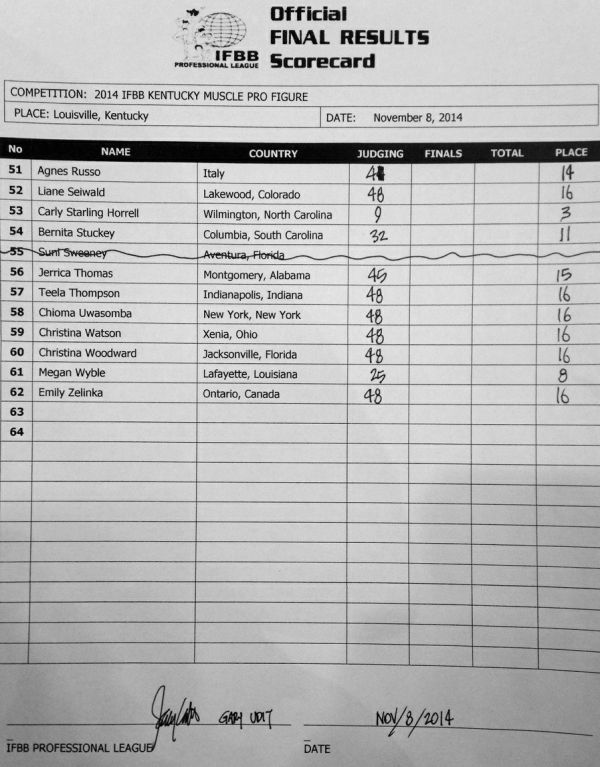 Official
FINAL RESULTS
Scorecard
IFBB
PROFESSIONAL LEAGUE
COMPETITION: 2014 IFBB KENTUCKY MUSCLE PRO FIGURE
PLACE: Louisville, Kentucky DATE: November 8, 2014
No NAME COUNTRY JUDGING FINALS TOTAL PLACE
51 Agnes Russo Italy 14
52 Liane Seiwald Lakewood, Colorado 48 16
53 Carly Starling Horrell Wilmington, North Carolina 9 3
54 Bernita Stuckey Columbia, South Carolina 32 11
55 Suni Sweeney Aventura, Florida
56 Jerrica Thomas Montgomery, Alabama 45 15
57 Teela Thompson Indianapolis, Indiana 48 16
58 Chioma Uwasomba New York, New York 48 16
59 Christina Watson Xenia, Ohio 48 16
60 Christina Woodward Jacksonville, Florida 48 16
61 Megan Wyble Lafayette, Louisiana 25 8
62 Emily Zelinka Ontario, Canada 48 16
63
64
GARY UDIT NOV/8/2014
IFBB PROFESSIONAL LEAGUE DATE